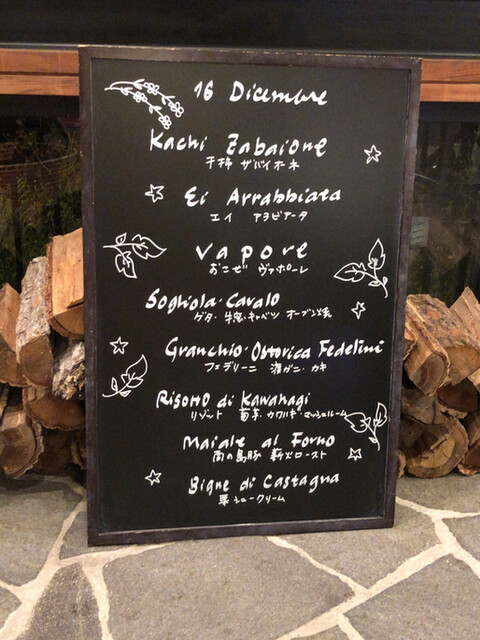 16 Dicembre
Kachi Zabaione
干柿 ザバイオーネ
Ei Arrabbiata
エイ アラビアータ
Vapore
おこぜ ヴァポーレ
Sogliola・Cavalo
ゲタ・キャベツ オーブン焼
Granchio・Ostorica Fedelini
フェデリーニ 渡ガニ・カキ
Risotto di Kawahagi
リゾット 菊芋・カワハギ・マッシュルーム
Maiale al Forno
南の島豚 薪火ロースト
Bigne di Castagna
栗 シュークリーム